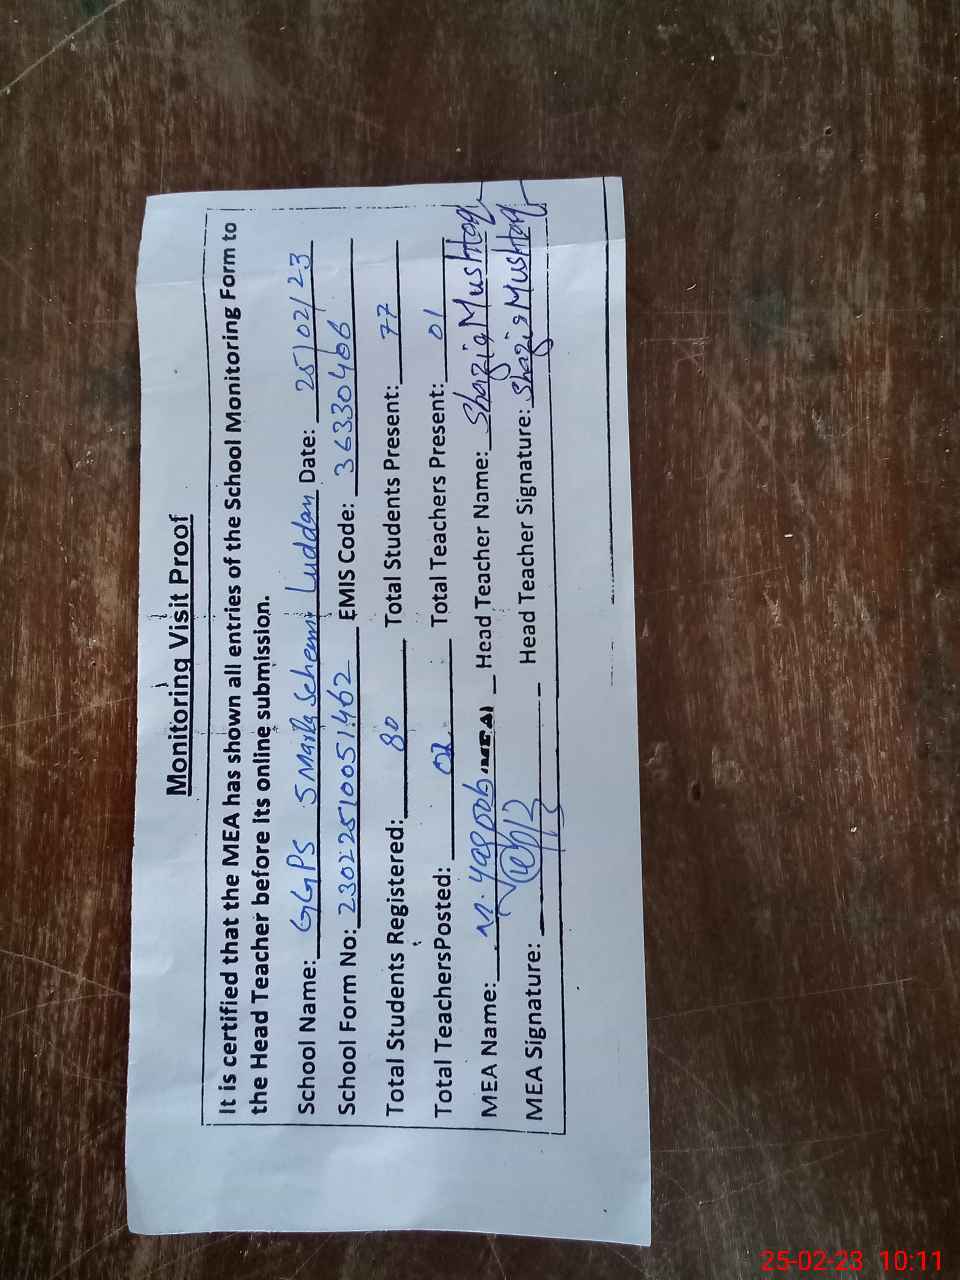 Monitoring Visit Proof
It is certified that the MEA has shown all entries of the School Monitoring Form to
the Head Teacher before Its online submission.
School Name: GGPS 5 Marla Scheme Luddan Date: 25/02/23
School Form No: 23022510051462 EMIS Code: 36330466
Total Students Registered: 80 Total Students Present: 77
Total TeachersPosted: 02 Total Teachers Present: 01
MEA Name: M. Yaqoob (MEA) Head Teacher Name: Shazia Mushtaq
MEA Signature: Head Teacher Signature: Shazia Mushtaq
25-02-23 10:11